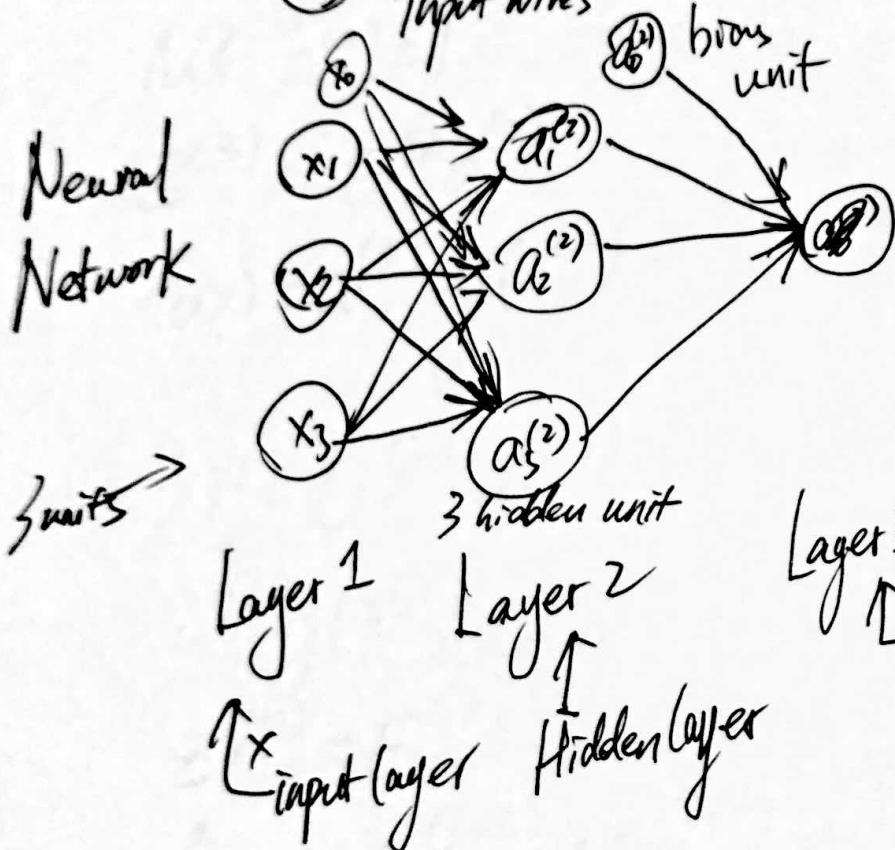 Input wires
x₀
a₀⁽²⁾ bias unit
Neural Network
x₁
a₁⁽²⁾
x₂
a₂⁽²⁾
x₃
a₃⁽²⁾
3 units
3 hidden unit
Layer 1
Layer 2
Layer
x
input layer
Hidden layer